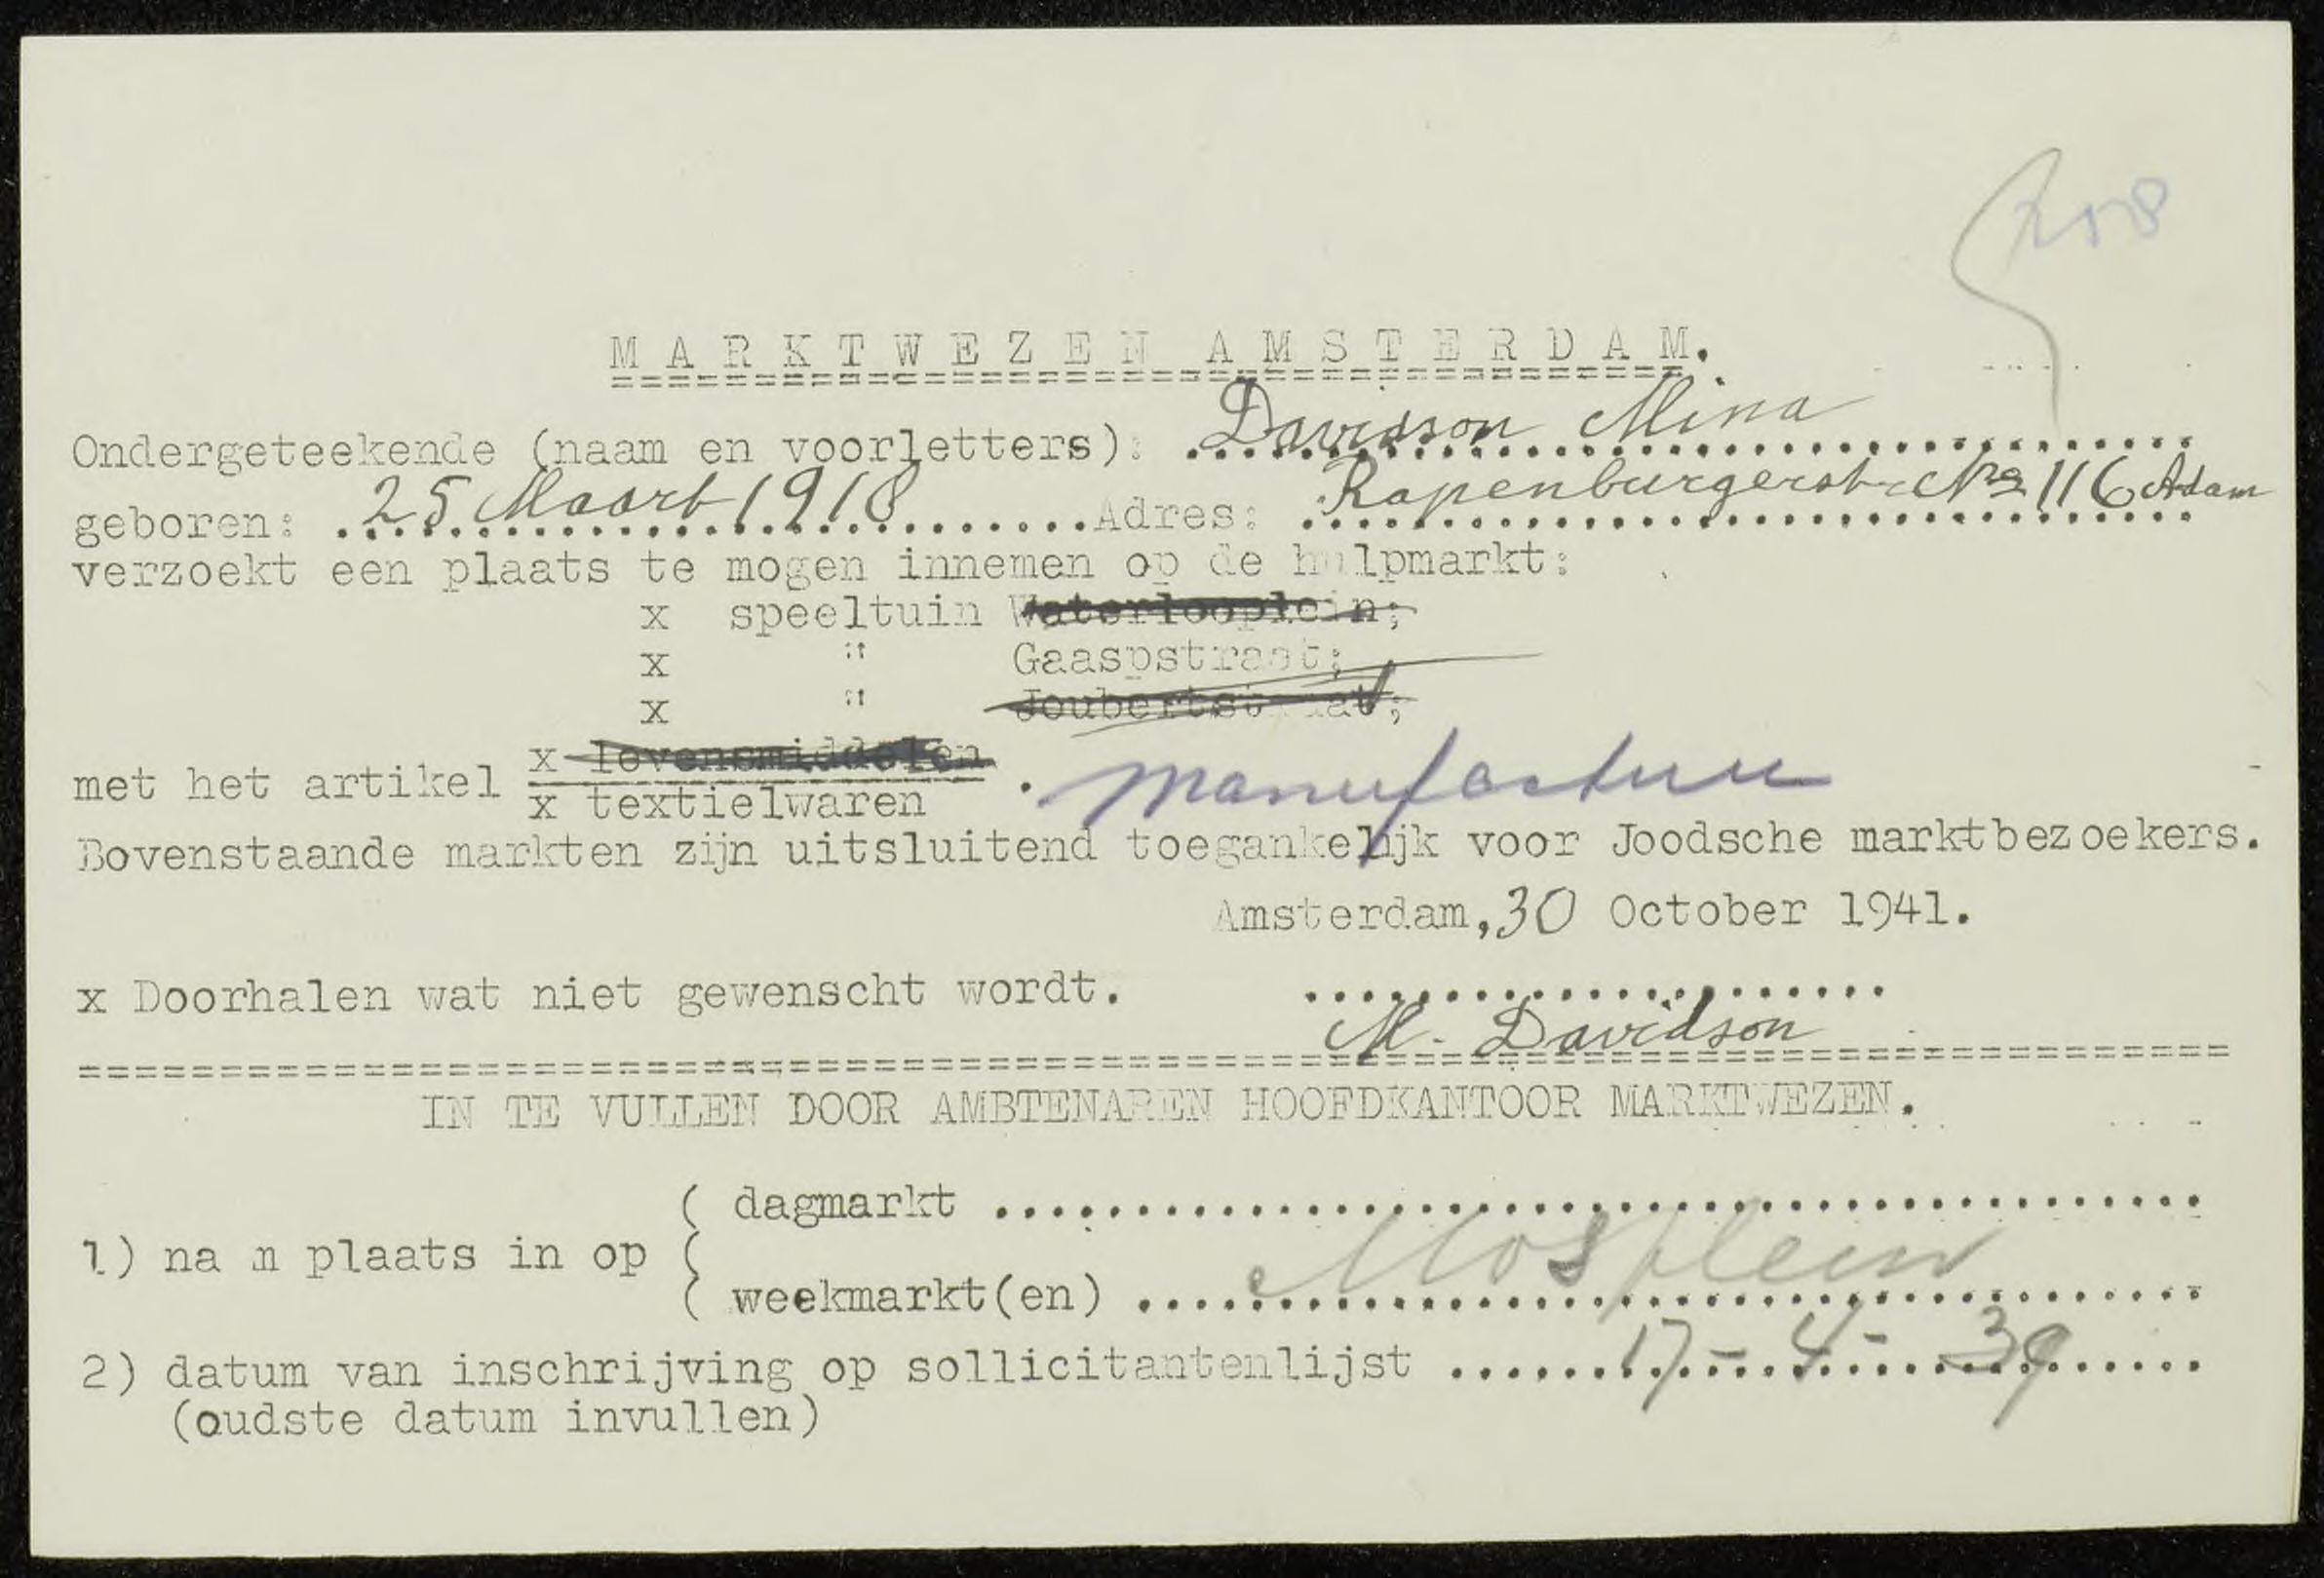 MARKTWEZEN AMSTERDAM.
Ondergeteekende (naam en voorletters): Davidson Mina
geboren: 25 Maart 1918 Adres: Rapenburgerstr No 116 Adam
verzoekt een plaats te mogen innemen op de hulpmarkt:
x speeltuin Waterlooplein;
x " Gaaspstraat;
x " Joubertstraat;
x levensmiddelen
met het artikel
x textielwaren . manufacturen
Bovenstaande markten zijn uitsluitend toegankelijk voor Joodsche marktbezoekers.
Amsterdam, 30 October 1941.
x Doorhalen wat niet gewenscht wordt.
M. Davidson
IN TE VULLEN DOOR AMBTENAREN HOOFDKANTOOR MARKTWEZEN.
( dagmarkt
1) na m plaats in op (
( weekmarkt(en) Mosplein
2) datum van inschrijving op sollicitantenlijst 17-4-39
(oudste datum invullen)